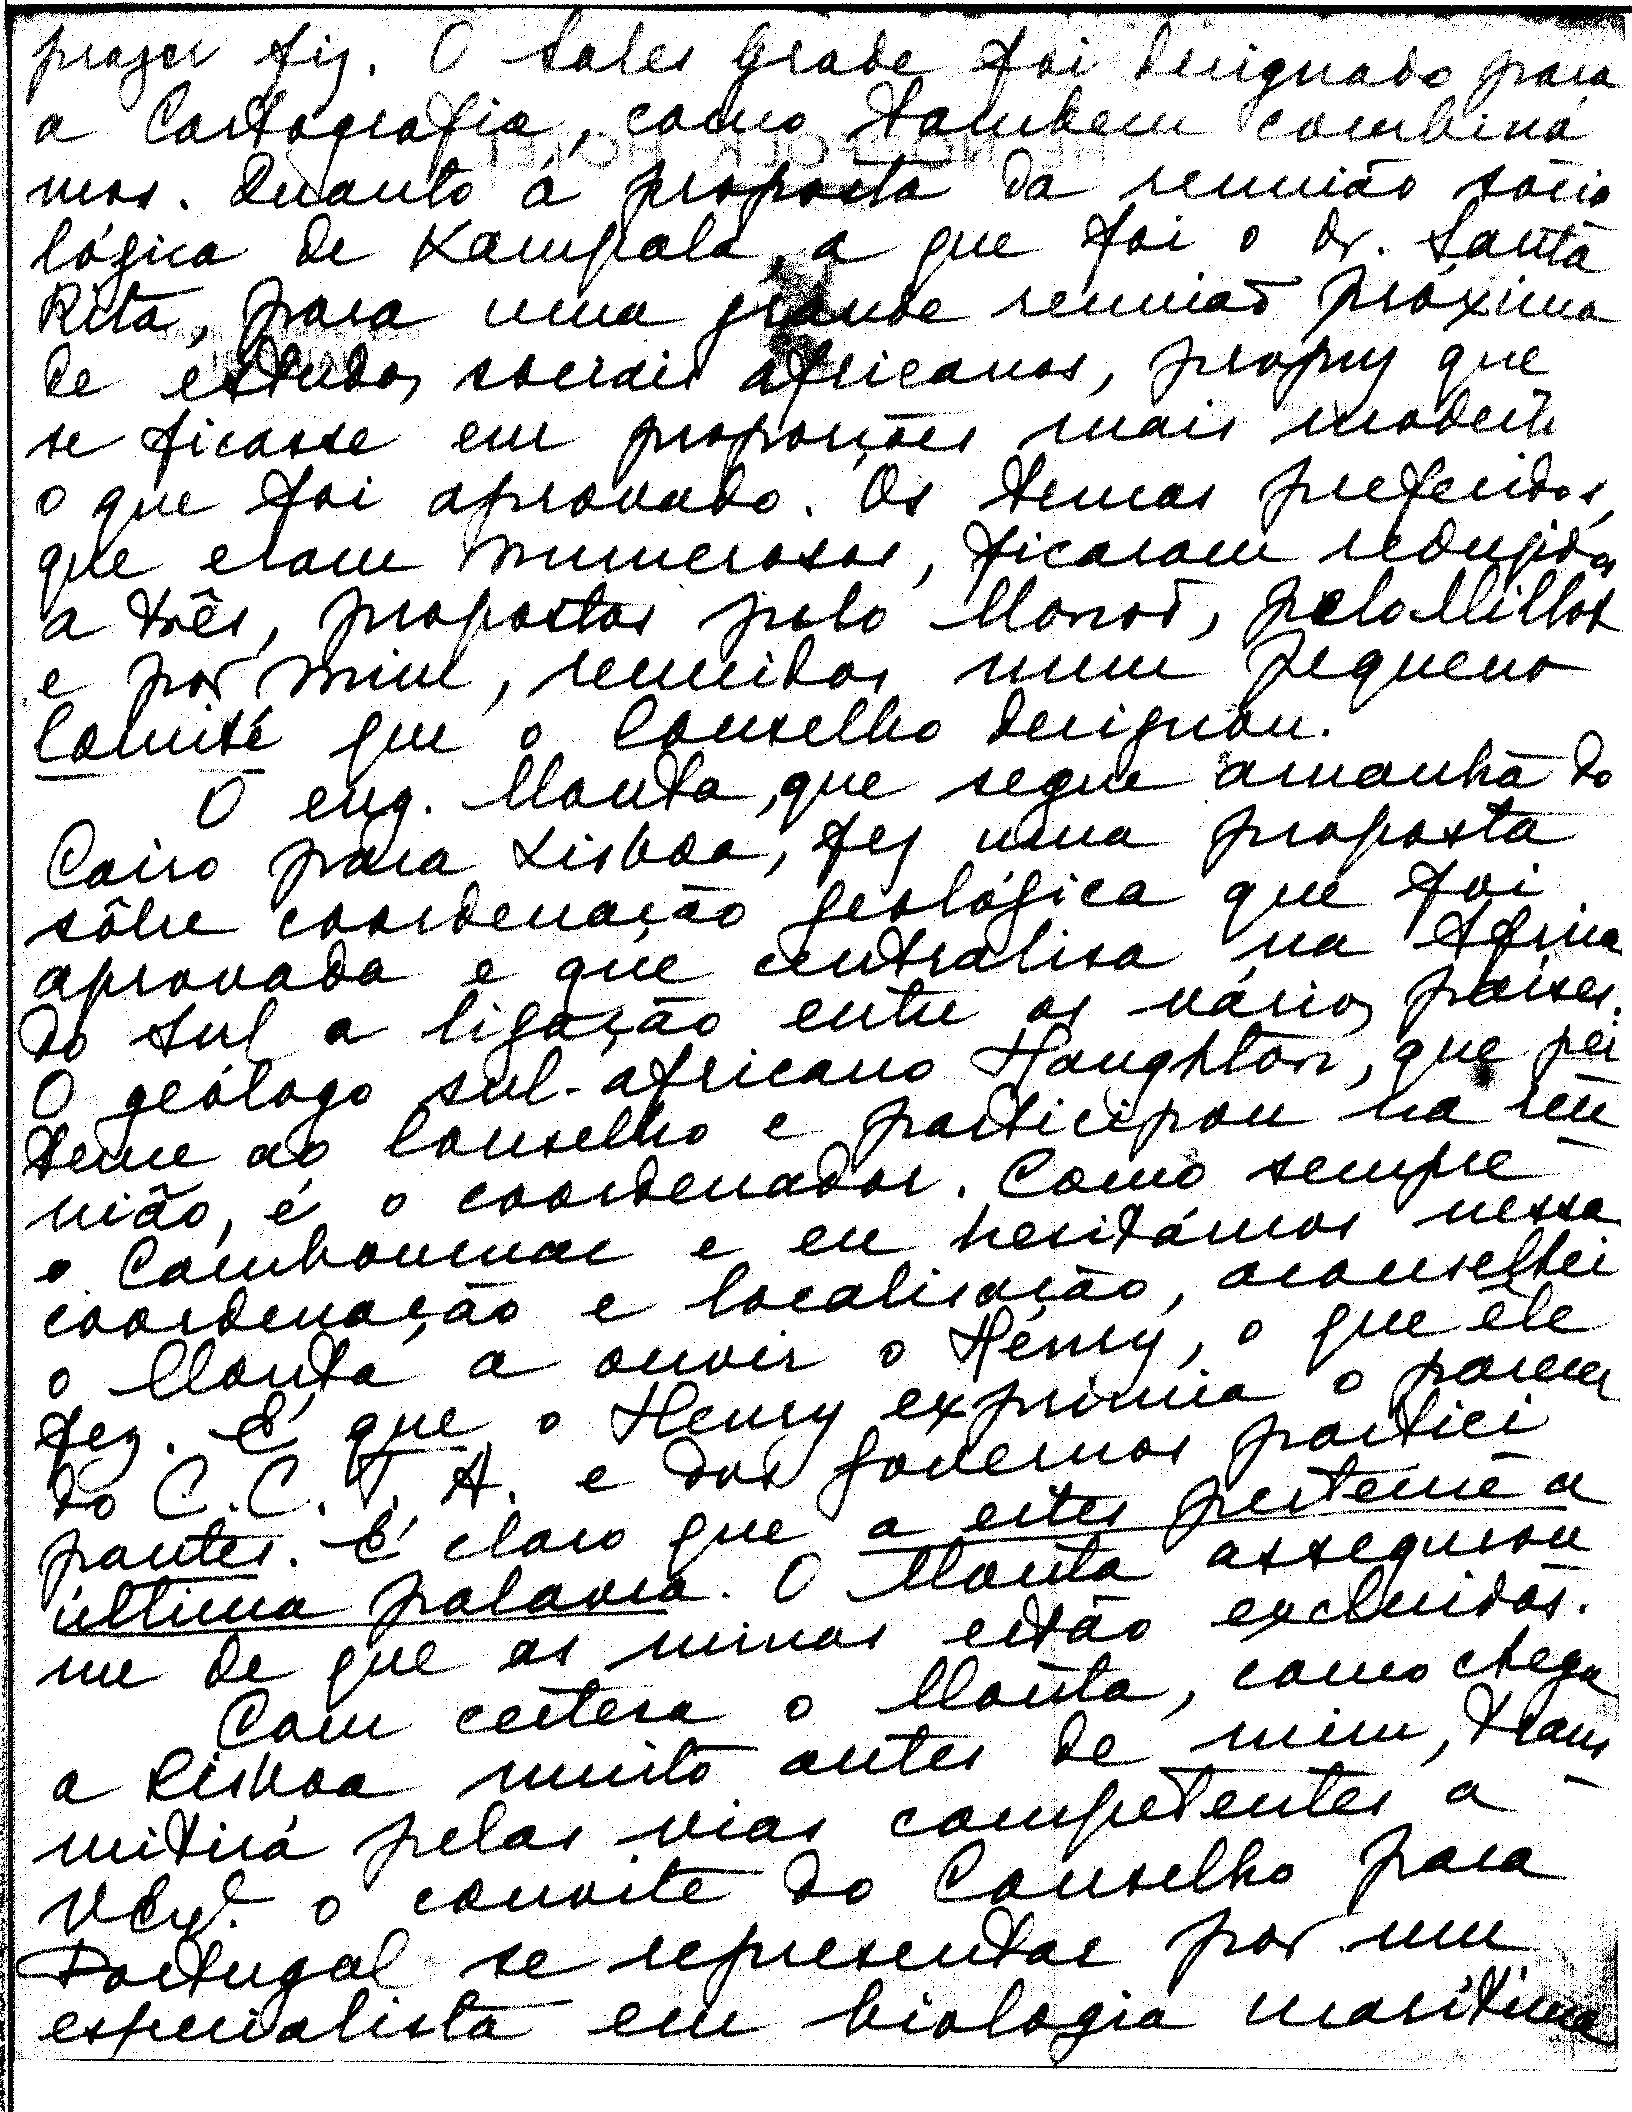 prazer fiz. O Sales Grade foi designado para
a Cartografia, como tambem combiná
mos. Quanto á proposta da reunião socio
lógica de Kampala, a que foi o dr. Santa
Rita, para uma grande reunião próxima
de estudos sociais africanos, propuz que
se ficasse em proporções mais modestas
o que foi aprovado. Os temas preferidos,
que eram numerosos, ficaram reduzidos
a três, propostos pelo Monod, pelo Millot
e por mim, reunidos num pequeno
Comité que o Conselho designou.
O eng. Mouta, que segue amanhã do
Cairo para Lisboa, fez uma proposta
sôbre coordenação geológica que foi
aprovada e que centralisa na Africa
do Sul a ligação entre os vários paises.
O geólogo sul-africano Haughton, que per
tence ao Conselho e participou na reu
nião, é o coordenador. Como sempre
o Cambournac e eu hesitámos nessa
coordenação e localisação, aconselhei
o Mouta a ouvir o Henry, o que êle
fez. E' que o Henry exprimia o parecer
do C.C.T.A. e dos governos partici
pantes. E' claro que a estes pertence a
última palavra. O Mouta assegurou
me de que as minas estão excluidas.
Com certesa o Mouta, como chega
a Lisboa muito antes de mim, trans
mitirá pelas vias competentes a
V. Exª. o convite do Conselho para
Portugal se representar por um
especialista em biologia marítima